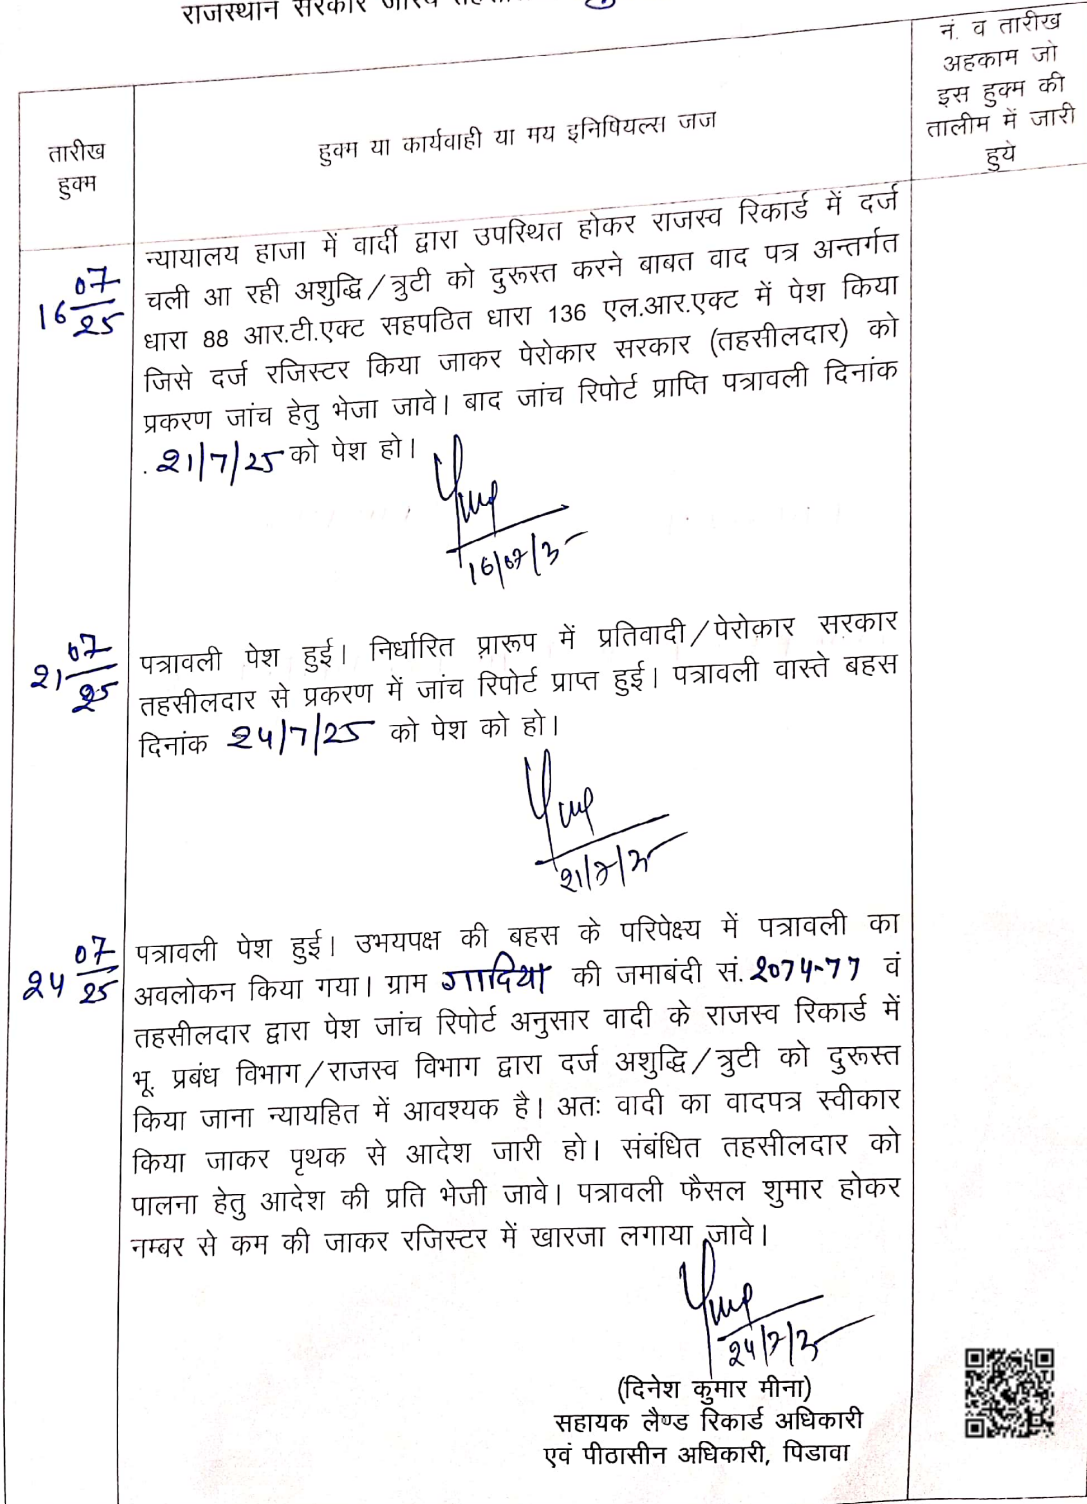 राजस्थान सरकार जरिये
नं. व तारीख
अहकाम जो
इस हुक्म की
तालीम में जारी
हुये
तारीख
हुक्म
हुक्म या कार्यवाही या मय इनिषियल्स जज
16 07/25
न्यायालय हाजा में वार्दी द्वारा उपस्थित होकर राजस्व रिकार्ड में दर्ज
चली आ रही अशुद्धि/त्रुटी को दुरूस्त करने बाबत वाद पत्र अन्तर्गत
धारा 88 आर.टी.एक्ट सहपठित धारा 136 एल.आर.एक्ट में पेश किया
जिसे दर्ज रजिस्टर किया जाकर पेरोकार सरकार (तहसीलदार) को
प्रकरण जांच हेतु भेजा जावे। बाद जांच रिपोर्ट प्राप्ति पत्रावली दिनांक
21/7/25 को पेश हो।
16/07/25
21 07/25
पत्रावली पेश हुई। निर्धारित प्रारूप में प्रतिवादी/पेरोकार सरकार
तहसीलदार से प्रकरण में जांच रिपोर्ट प्राप्त हुई। पत्रावली वास्ते बहस
दिनांक 24/7/25 को पेश को हो।
21/7/25
24 07/25
पत्रावली पेश हुई। उभयपक्ष की बहस के परिपेक्ष्य में पत्रावली का
अवलोकन किया गया। ग्राम गादिया की जमाबंदी सं. 2074-77 वं
तहसीलदार द्वारा पेश जांच रिपोर्ट अनुसार वादी के राजस्व रिकार्ड में
भू. प्रबंध विभाग/राजस्व विभाग द्वारा दर्ज अशुद्धि/त्रुटी को दुरूस्त
किया जाना न्यायहित में आवश्यक है। अतः वादी का वादपत्र स्वीकार
किया जाकर पृथक से आदेश जारी हो। संबंधित तहसीलदार को
पालना हेतु आदेश की प्रति भेजी जावे। पत्रावली फैसल शुमार होकर
नम्बर से कम की जाकर रजिस्टर में खारजा लगाया जावे।
24/7/25
(दिनेश कुमार मीना)
सहायक लैण्ड रिकार्ड अधिकारी
एवं पीठासीन अधिकारी, पिडावा